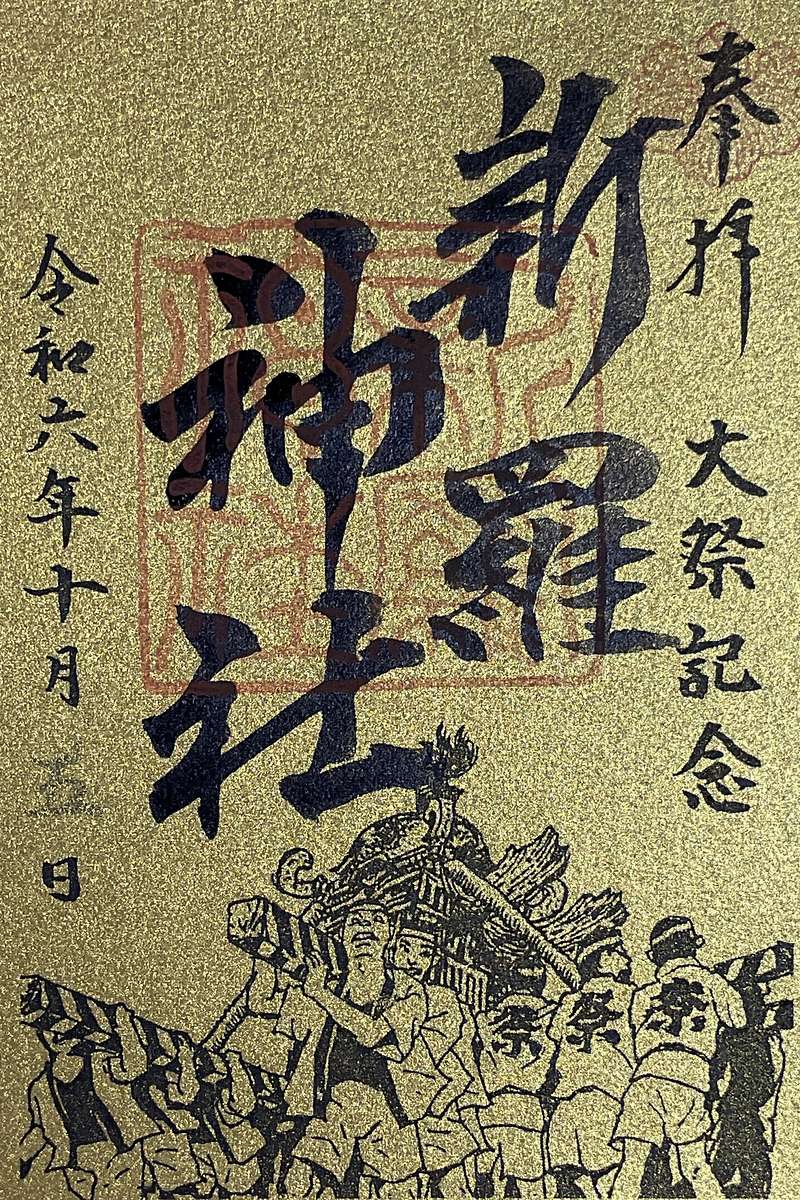 奉拝 大祭記念
新羅
神社
令和六年十月 日
祭
祭
祭